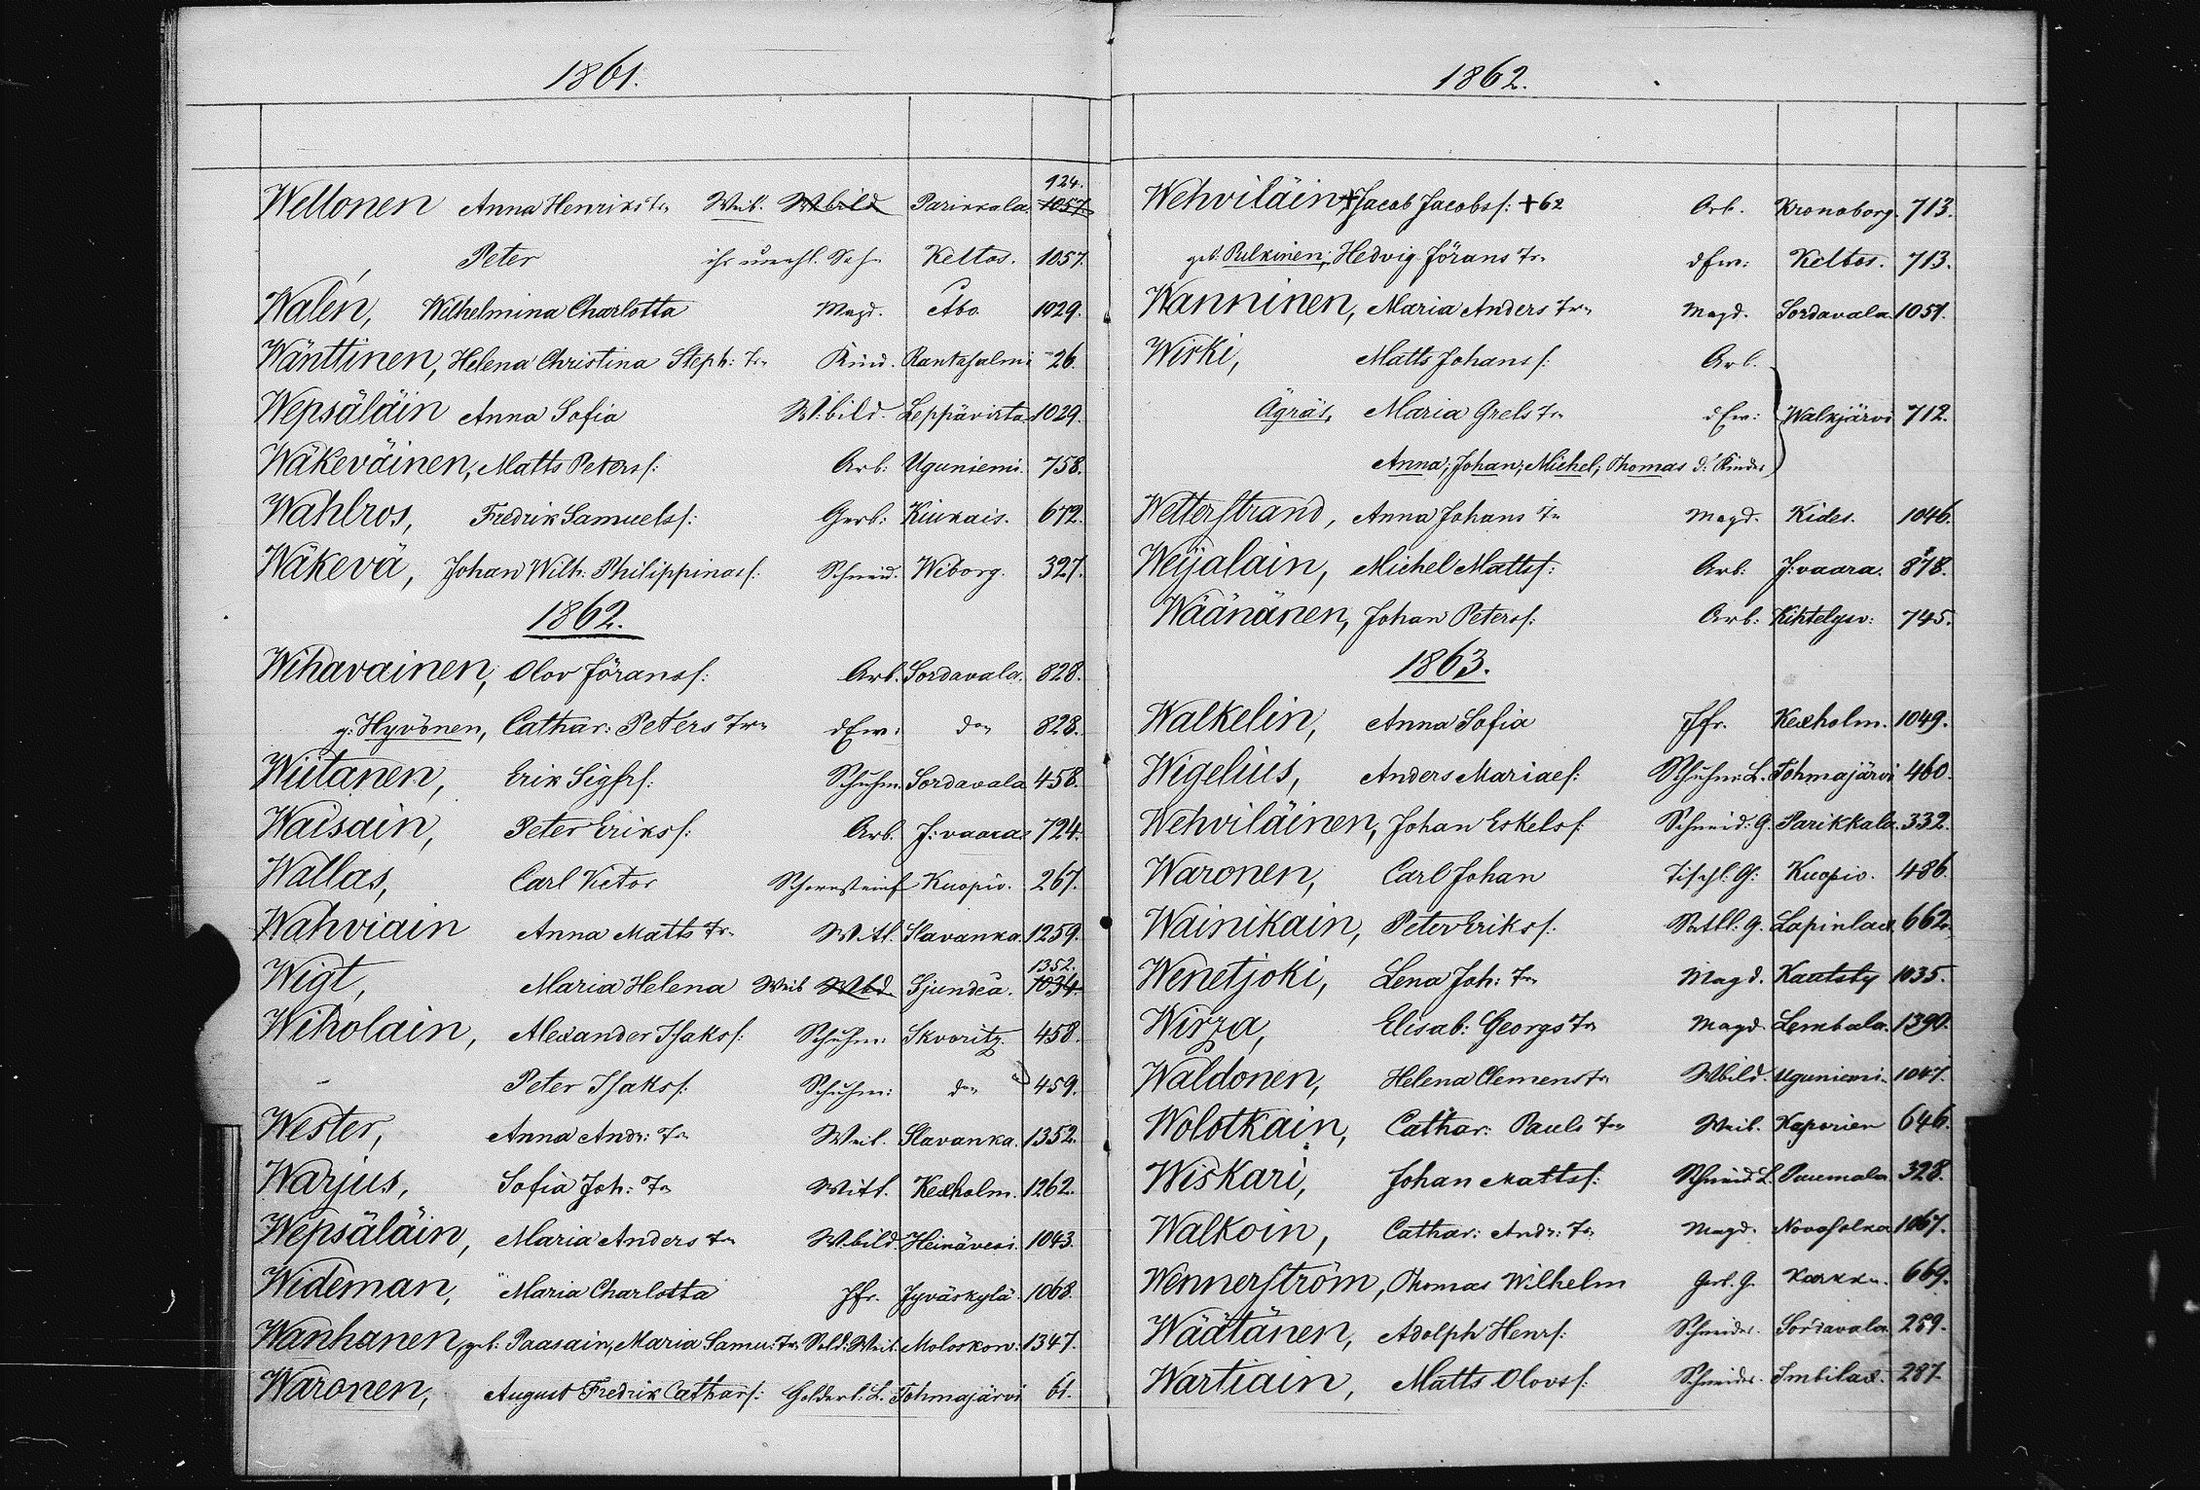 1861.
Wellonen Anna Henriks Tr. Weib. Wbild Parikkala. 924. 1057.
Peter ihr unehl. Sohn Keltos. 1057.
Walén, Wilhelmina Charlotta Magd. Åbo 1029.
Wänttinen, Helena Christina Steph: Tr. Kind. Rantasalmi 26.
Wepsäläin Anna Sofia W:bild. Leppävirta 1029.
Wäkeväinen, Matts Peterss: Arb: Uguniemi. 758.
Wahlros, Fredrik Samuelss: Gerb: Kiukais. 672.
Wäkevä, Johan Wilh: Philippinass: Schneid. Wiborg. 327.
1862.
Wihavainen, Olov Jöranss: Arb. Sordavala. 828.
g: Hyvönen, Cathar: Peters Tr. d Ew: do 828.
Wiitanen, Erik Sigfrs: Schuhm. Sordavala 458.
Waisain, Peter Erikss: Arb. J:vaara 724.
Wallas, Carl Victor Schornsteinf Kuopio. 267.
Wahviain Anna Matts Tr. Witt. Slavanka. 1259.
Wigt, Maria Helena Weib Wbd. Sjundeå. 1352. 1034.
Wiholain, Alexander Isakss: Schuhm: Skvoritz. 458.
Peter Isakss: Schuhm: do 459.
Wester, Anna Andr: Tr. Weib. Slavanka. 1352.
Warjus, Sofia Joh: Tr. Witt. Kexholm. 1262.
Wepsäläin, Maria Anders Tr. W.bild. Heinävesi. 1043.
Wideman, Maria Charlotta Jfr. Jyväskylä. 1068.
Wanhanen, geb: Paasain, Maria Samu: Tr. Sold: Weib. Moloskow: 1347.
Waronen, August Fredrik Cathars: Golderb: L. Tohmajärvi 61.
1862.
Wehviläin + Jacob Jacobss: + 62 Arb. Kronoborg. 713.
geb. Pulkinen; Hedvig Jörans Tr. d Ew: Keltos. 713.
Wanninen, Maria Anders Tr. Magd. Sordavala 1051.
Wirki, Matts Johanss: Arb.
Ägräs, Maria Grels Tr. d Ew: Walkjärvi 712.
Anna; Johan; Michel, Thomas d: Kinder
Wetterstrand, Anna Johans Tr. Magd. Kides. 1046.
Weijalain, Michel Mattss: Arb: J:vaara. 878.
Wäänänen, Johan Peterss: Arb: Kihtelysv: 745.
1863.
Walkelin, Anna Sofia Jfr. Kexholm. 1049.
Wigelius, Anders Mariaes: Schuhm: L. Tohmajärvi 460.
Wehviläinen, Johan Eskelss: Schneid: G. Parikkala. 332.
Waronen, Carl Johan Tischl. G: Kuopio. 486.
Wainikain, Peter Erikss: Sattl: G. Lapinlax. 662.
Wenetjoki, Lena Joh: Tr. Magd. Kautsty 1035.
Wirza, Elisab: Georgs Tr. Magd. Lembala. 1390.
Waldonen, Helena Clemens Tr. Wbild. Uguniemi. 1047.
Wolotkain, Cathar: Pauls Tr. Weib. Kaporien 646.
Wiskari, Johan Mattss: Schneid. L. Puumala. 328.
Walkoin, Cathar: Andr: Tr. Magd. Novosolka 1067.
Wennerström, Thomas Wilhelm Gerb. G. Karkku. 669.
Wäätänen, Adolph Henrs: Schneider. Sordavala. 289.
Wartiain, Matts Olovss: Schneider. Imbilax. 287.